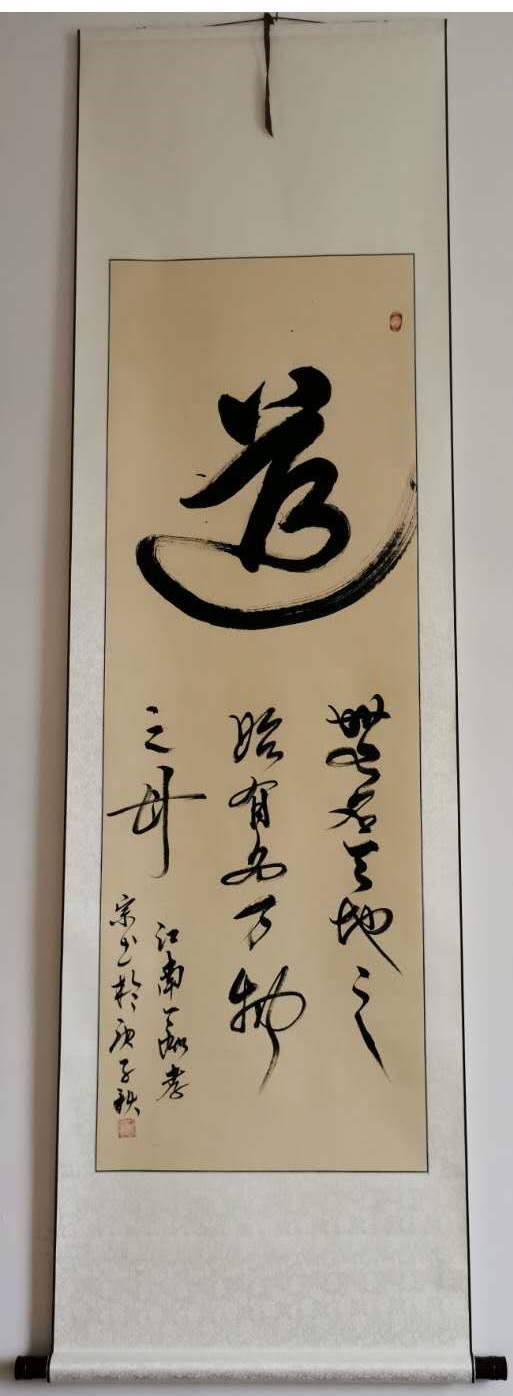 道
無名天地之
始有名万物
之母
江南
宗书於庚子秋